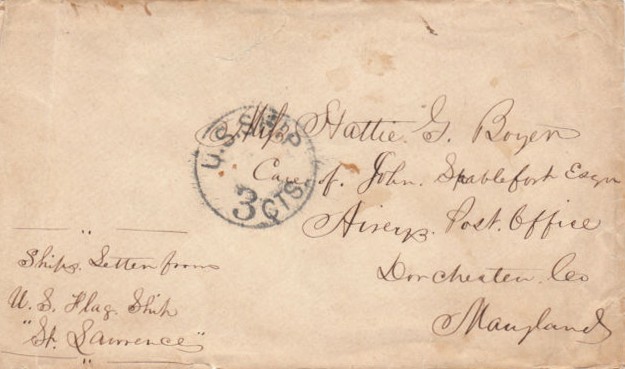 U.S. SHIP
3 CTS
Miss Hattie. G. Boyer
Care of. John. Shablefort Esqr
Aireys. Post. Office
Dorchester. Co
Maryland
Ships. Letter from
U. S. Flag. Ship
"St. Lawrence"